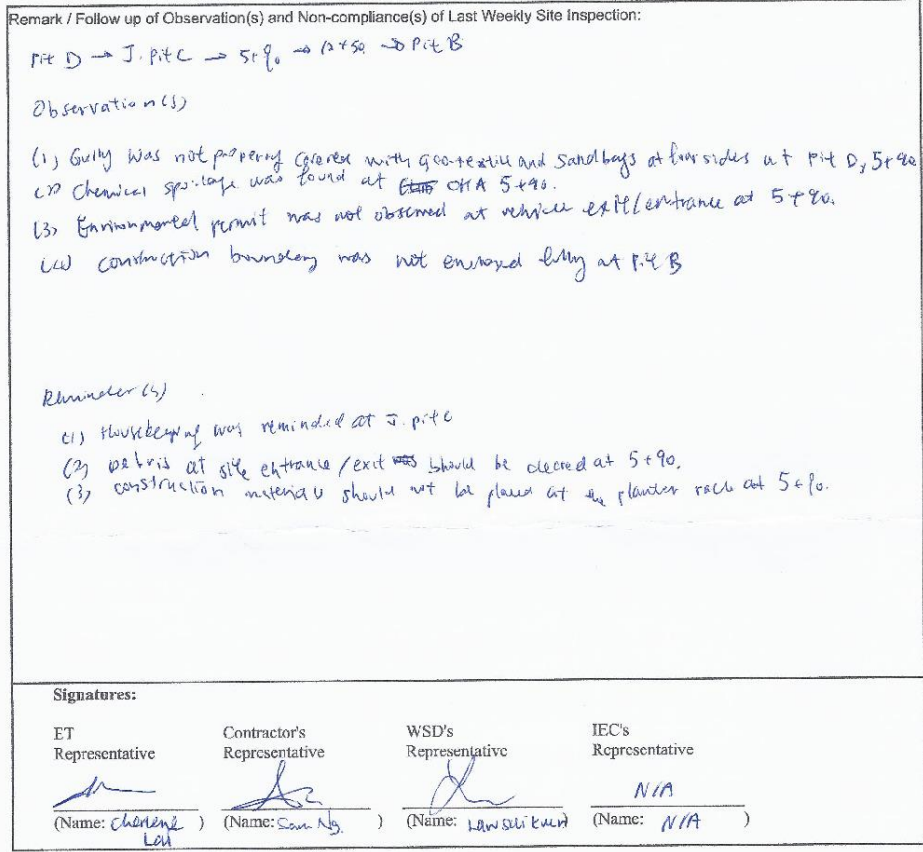 Remark / Follow up of Observation(s) and Non-compliance(s) of Last Weekly Site Inspection:
Pit D → J. Pit C → 5+90 → 12+50 → Pit B
Observation(s)
(1) Gully was not properly covered with geo-textile and sandbags at four sides at Pit D, 5+90
(2) Chemical spillage was found at CHA 5+90.
(3) Environmental permit was not observed at vehicle exit/entrance at 5+90.
(4) construction boundary was not enclosed fully at Pit B
Reminder(s)
(1) Housekeeping was reminded at J. pit C
(2) Debris at site entrance/exit should be cleared at 5+90.
(3) construction materials should not be placed at the planter at 5+90.
Signatures:
ET Representative
Contractor's Representative
WSD's Representative
IEC's Representative
N/A
(Name: Cherlene )
(Name: Sam Ng. )
(Name: )
(Name: N/A )